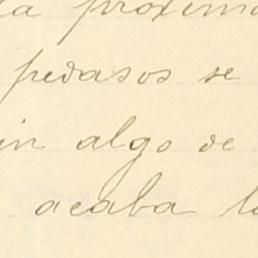 la proxima
pedasos se
in algo de
acaba l